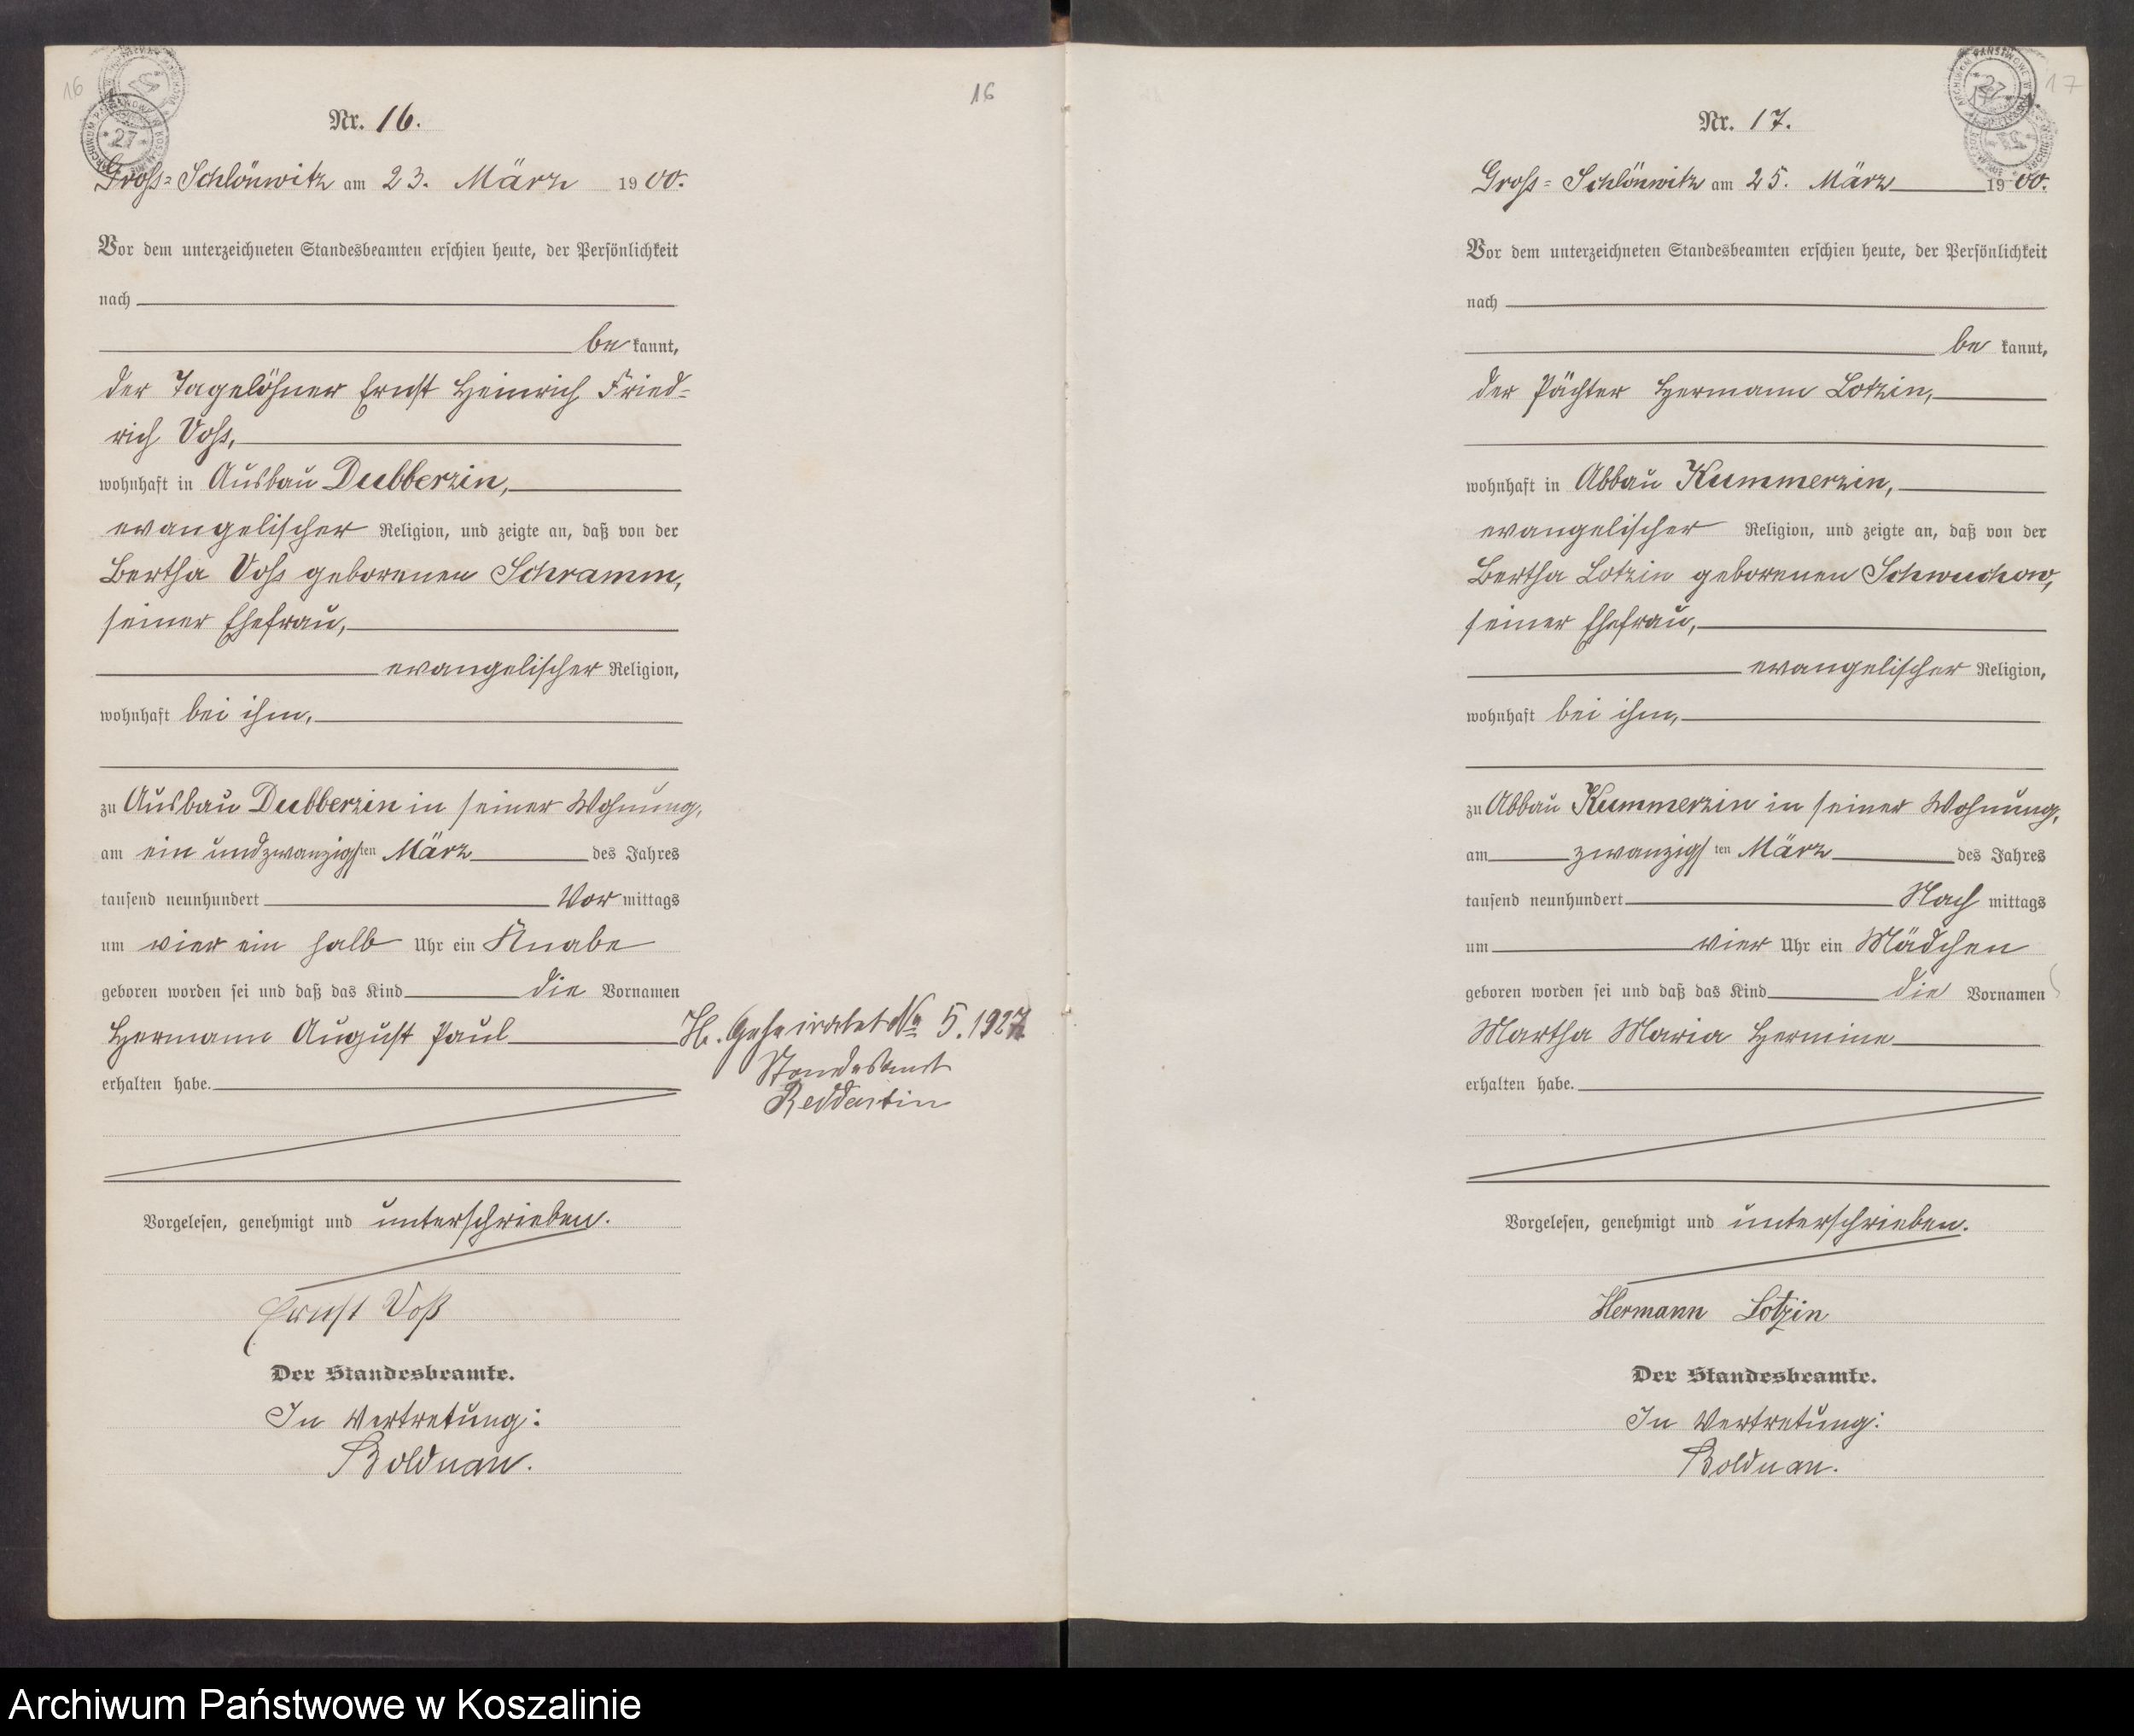 16
16
Nr. 16.
Gross-Schlönwitz am 23. März 1900.
Vor dem unterzeichneten Standesbeamten erschien heute, der Persönlichkeit
nach
be kannt,
der Tagelöhner Ernst Heinrich Fried-
rich Voss,
wohnhaft in Ausbau Dubberzin,
evangelischer Religion, und zeigte an, daß von der
Bertha Voss geborenen Schramm,
seiner Ehefrau,
evangelischer Religion,
wohnhaft bei ihm,
zu Ausbau Dubberzin in seiner Wohnung,
am ein und zwanzigsten März des Jahres
tausend neunhundert Vor mittags
um vier ein halb Uhr ein Knabe
geboren worden sei und daß das Kind die Vornamen
Hermann August Paul
erhalten habe.
H. Geheiratet No 5. 1927
Standesamt
Reddentin
Vorgelesen, genehmigt und unterschrieben.
Ernst Voß
Der Standesbeamte.
In Vertretung:
Bolduan.
17
Nr. 17.
Gross-Schlönwitz am 25. März 1900.
Vor dem unterzeichneten Standesbeamten erschien heute, der Persönlichkeit
nach
be kannt,
der Pächter Hermann Lotzin,
wohnhaft in Abbau Kummerzin,
evangelischer Religion, und zeigte an, daß von der
Bertha Lotzin geborenen Schwuchow,
seiner Ehefrau,
evangelischer Religion,
wohnhaft bei ihm,
zu Abbau Kummerzin in seiner Wohnung,
am zwanzigsten März des Jahres
tausend neunhundert Nach mittags
um vier Uhr ein Mädchen
geboren worden sei und daß das Kind die Vornamen
Martha Maria Hermine
erhalten habe.
Vorgelesen, genehmigt und unterschrieben.
Hermann Lotzin
Der Standesbeamte.
In Vertretung:
Bolduan.
Archiwum Państwowe w Koszalinie